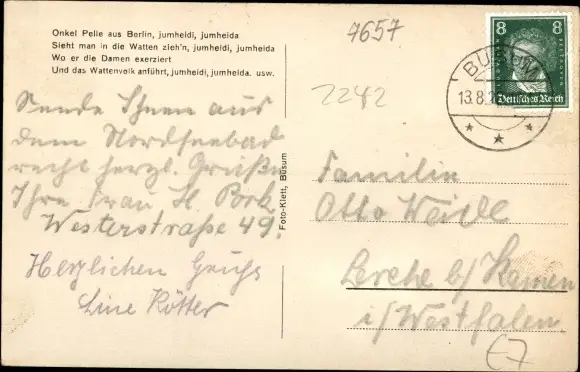 Onkel Pelle aus Berlin, jumheidi, jumheida
Sieht man in die Watten zieh'n, jumheidi, jumheida
Wo er die Damen exerziert
Und das Wattenvolk anführt, jumheidi, jumheida. usw.
Sende Ihnen aus
dem Nordseebad
recht herzl. Grüße
Ihre Frau H. Bork
Westerstraße 49.
Herzlichen Gruß
Line Rötter
Foto-Klett, Büsum
4657
2242
8 8
Deutsches Reich
BÜSUM
13.8.
Familie
Otto Weidl
Lerche b/ Kamen
i/ Westfalen.
€7